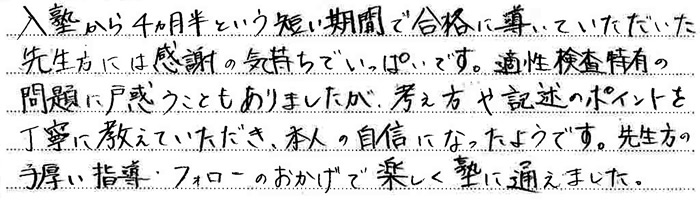 入塾から4ヵ月半という短い期間で合格に導いていただいた
先生方には感謝の気持ちでいっぱいです。適性検査特有の
問題に戸惑うこともありましたが、考え方や記述のポイントを
丁寧に教えていただき、本人の自信になったようです。先生方の
手厚い指導・フォローのおかげで楽しく塾に通えました。